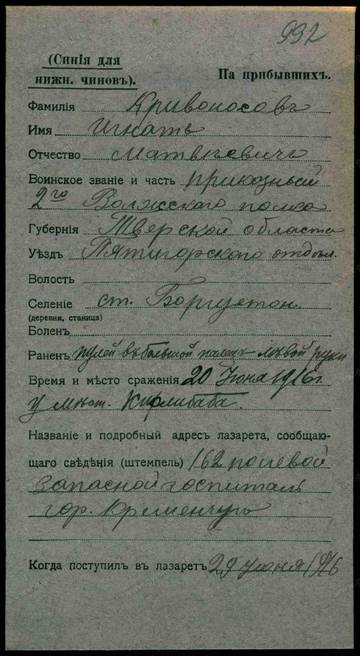 992
(Синія для
нижн. чиновъ).
На прибывшихъ.
Фамилія Кривоносовъ
Имя Игнатъ
Отчество Матвѣевичъ
Воинское званіе и часть приказный
2го Волжского полка
Губернія Тверской области
Уѣздъ Пятигорского отдѣл.
Волость
Селеніе ст. Боргустон.
(деревня, станица)
Боленъ
Раненъ пулей въ большой палецъ лѣвой руки
Время и мѣсто сраженія 20 Іюня 1916 г.
у мѣст. Кирлибаба.
Названіе и подробный адресъ лазарета, сообщаю-
щаго свѣдѣнія (штемпель) 162 полевой
запасной госпиталь
гор. Кременчугъ
Когда поступилъ въ лазаретъ 29 іюня 1916